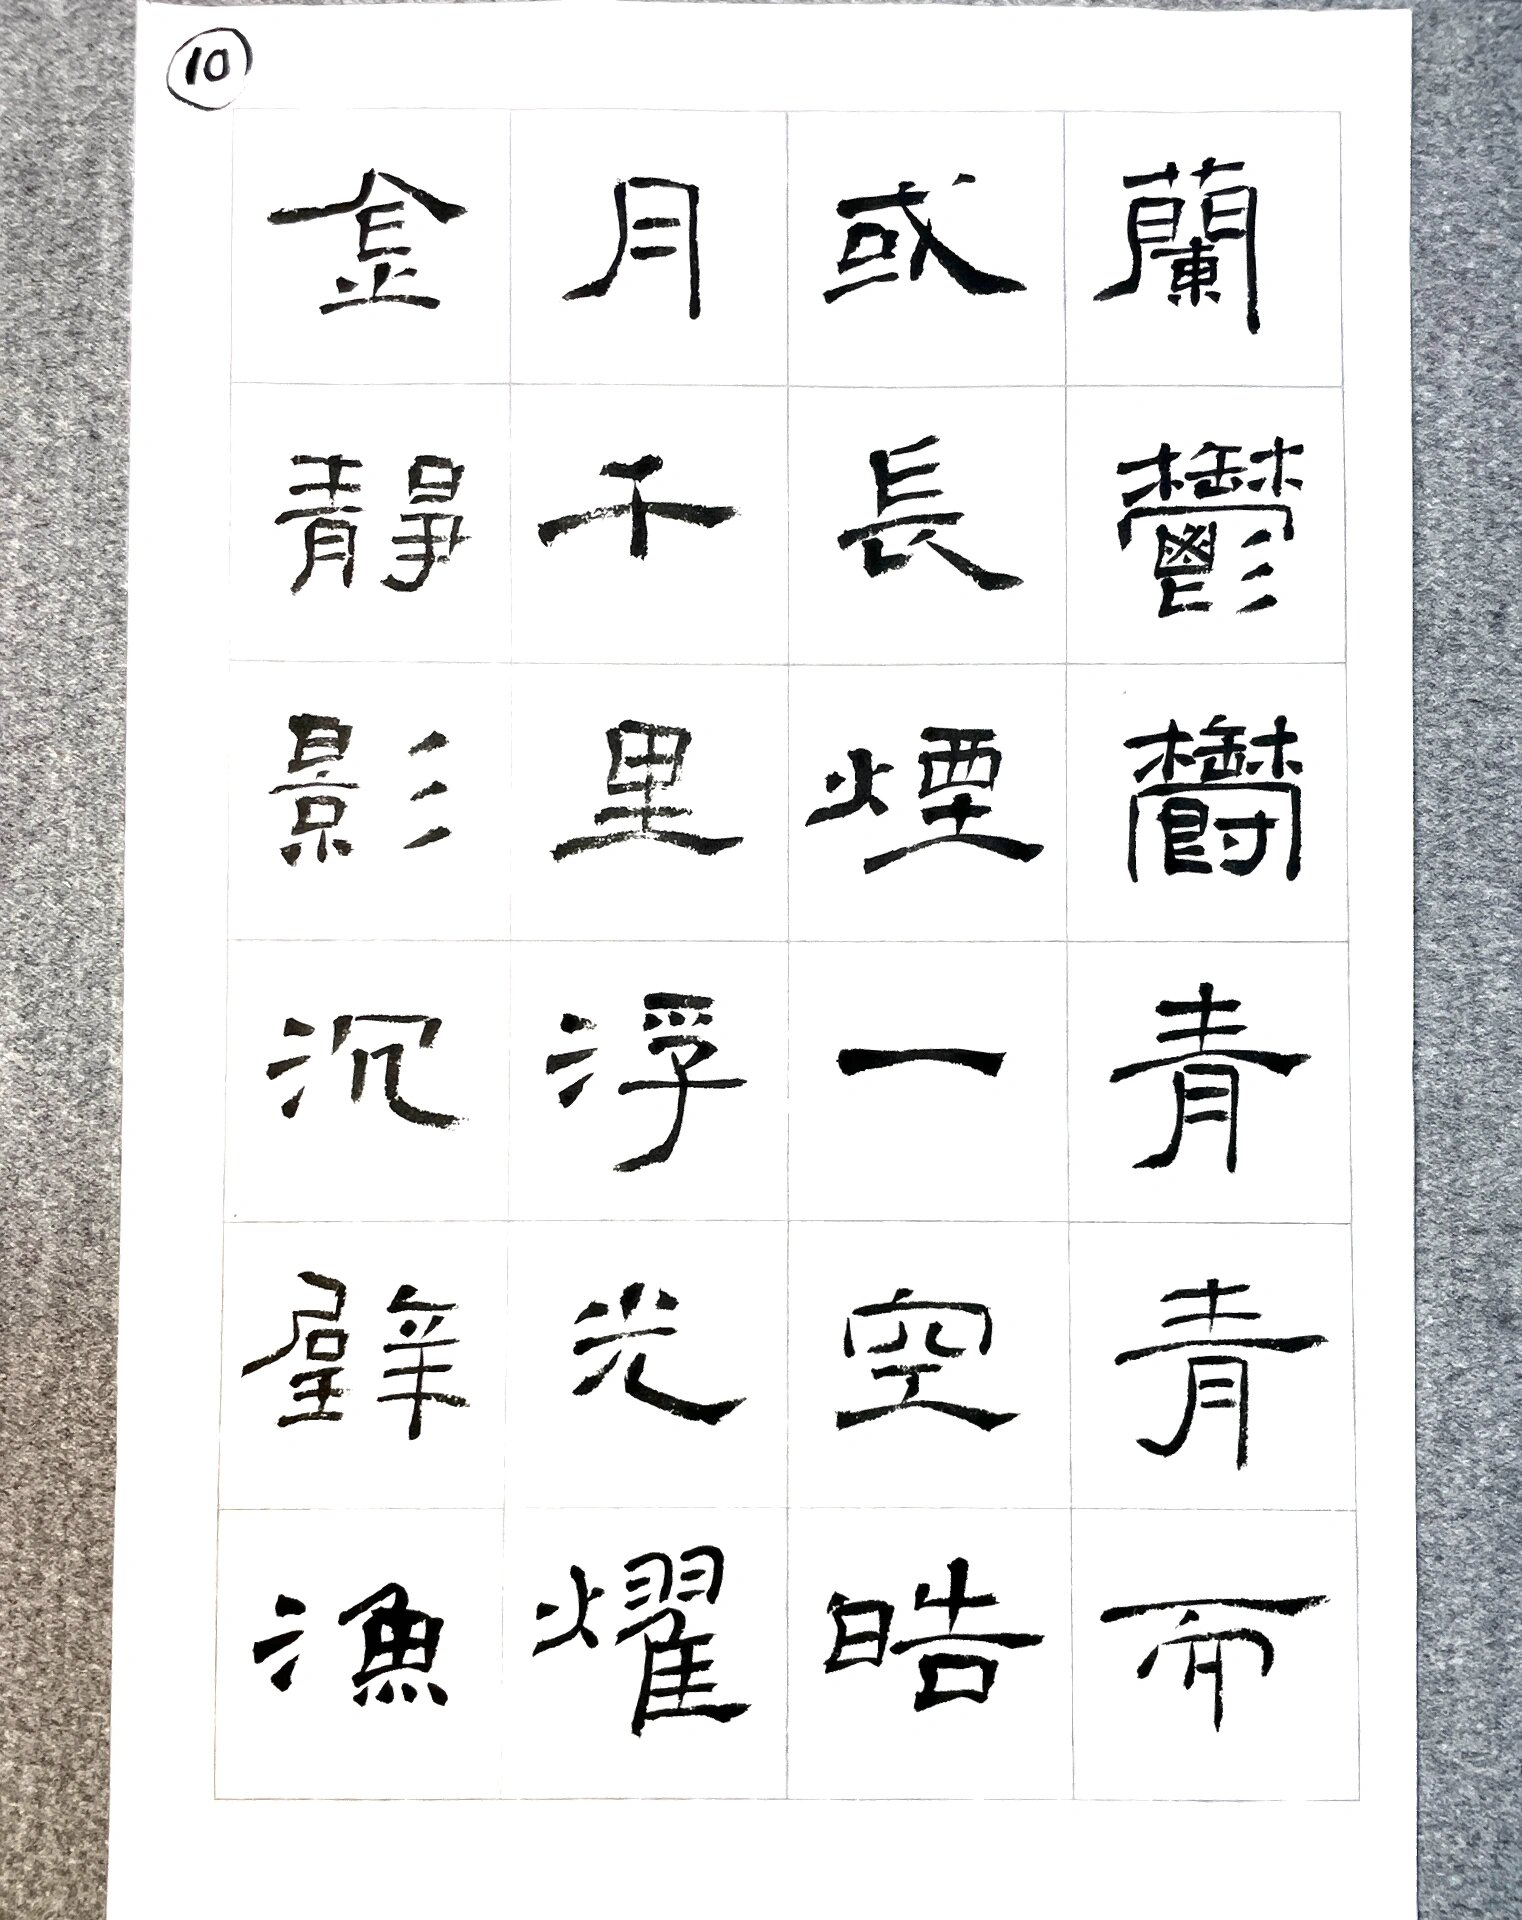 10
蘭鬱欝青青而
或長煙一空皓
月千里浮光耀
金靜影沉璧漁